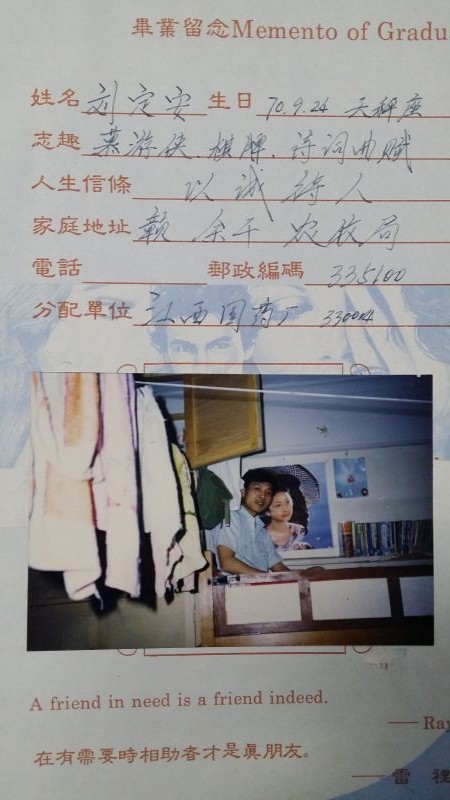 畢業留念Memento of Gradu
姓名 刘定安 生日 70.9.24 天秤座
志趣 慕游侠、棋牌、诗词曲赋
人生信條 以诚待人
家庭地址 赣 余干 农牧局
電話 郵政編碼 335100
分配單位 江西国药厂 330004
A friend in need is a friend indeed.
— Ray
在有需要時相助者才是眞朋友。
— 雷 裡